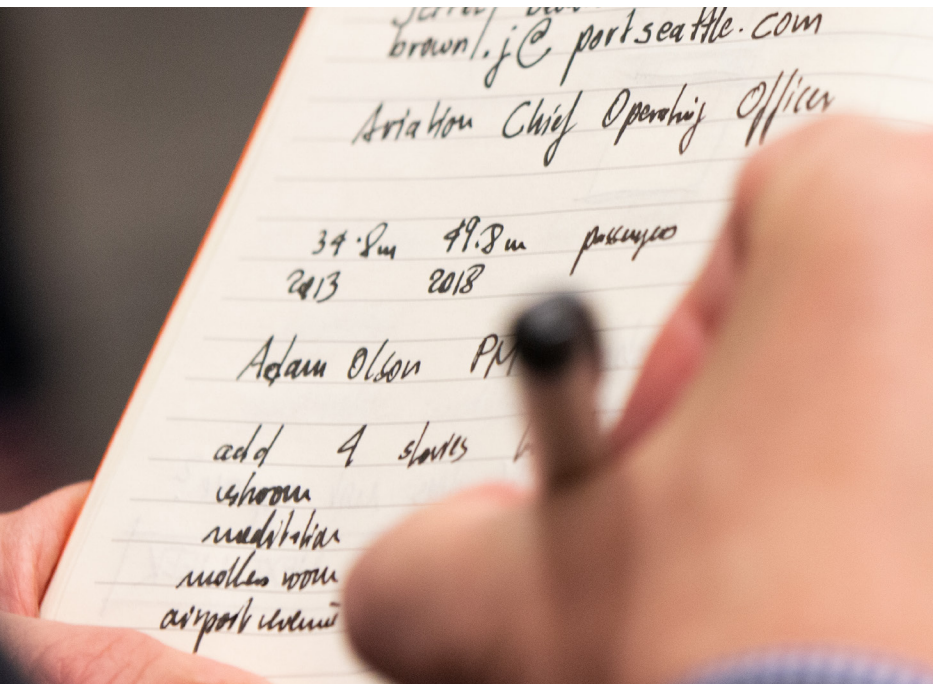 brown.j@portseattle.com
Aviation Chief Operating Officer
34.8m 49.8m passengers
2013 2018
Adam Olson PM
add 4 stories
meditation
mothers room
airport revenue